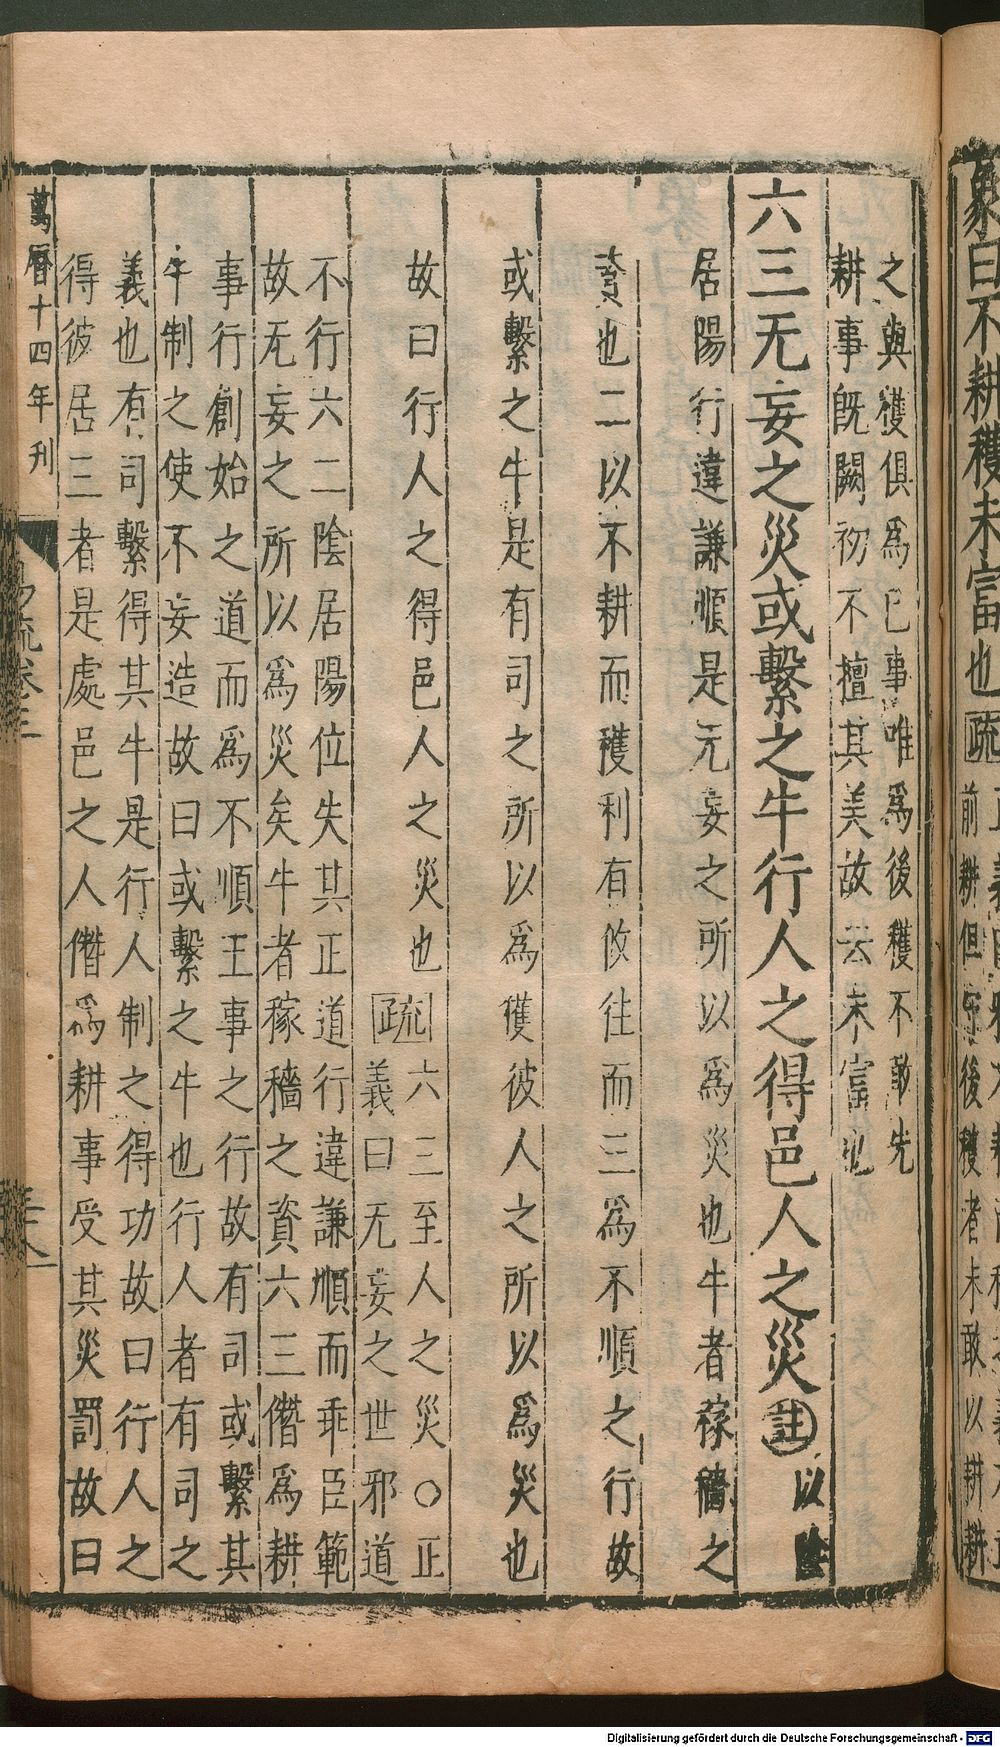 象曰不耕穫未富也疏
前耕但
後穫者未敢以耕耕
之與穫俱爲已事唯爲後穫不敢先
耕事旣闕初不擅其美故云未富也
六三无妄之災或繫之牛行人之得邑人之災註以陰
居陽行違謙順是无妄之所以爲災也牛者稼穡之
資也二以不耕而穫利有攸往而三爲不順之行故
或繫之牛是有司之所以爲獲彼人之所以爲災也
故曰行人之得邑人之災也疏六三至人之災○正
義曰无妄之世邪道
不行六二陰居陽位失其正道行違謙順而乖臣範
故无妄之所以爲災矣牛者稼穡之資六三僭爲耕
事行創始之道而爲不順王事之行故有司或繫其
牛制之使不妄造故曰或繫之牛也行人者有司之
義也有司繫得其牛是行人制之得功故曰行人之
得彼居三者是處邑之人僭爲耕事受其災罰故曰
萬曆十四年刊
易疏卷三
Digitalisierung gefördert durch die Deutsche Forschungsgemeinschaft - DFG